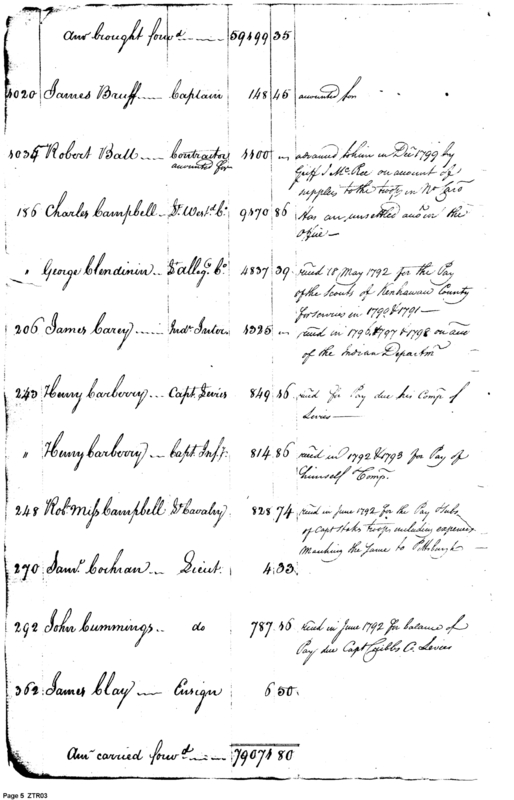 Amt brought forwd 59499 35
4020 James Bruff Captain 148 45 accounted for
4035 Robert Ball Contractor 4400 " advanced to him in Decr 1799 by
accounted for Griff J McRee on account of
supplies to the troops in No Caro
186 Charles Campbell Lt Westd Co 9570 86 Has an unsettled acct in the
Office
" George Clendinin Lt Allegy Co 4837 39 recied 18 May 1792 for the Pay
of the Scouts of Kenhawa County
for services in 1790 & 1791
206 James Carey Indn Inter 1325 " recied in 1796, 1797 & 1798 on acc
of the Indian Departm
243 Henry Carberry Capt Levies 849 46 recied for Pay due his Compy of
Levies
" Henry Carberry Capt Inft 814 86 recied in 1792 & 1793 for Pay of
himself & Compy
248 Robt Miss Campbell Lt Cavalry 828 74 recied in June 1792 for the Pay &
of Capt troops including expences
Marching the same to Pittsburgh
270 Saml Cochran Lieut 4 33
292 John Cummings do 787 46 recied in June 1792 for balance of
Pay due Capt Gibbs Co Levies
362 James Clay Ensign 6 50
Amt carried forwd 79074 80
Page 5 ZTR03